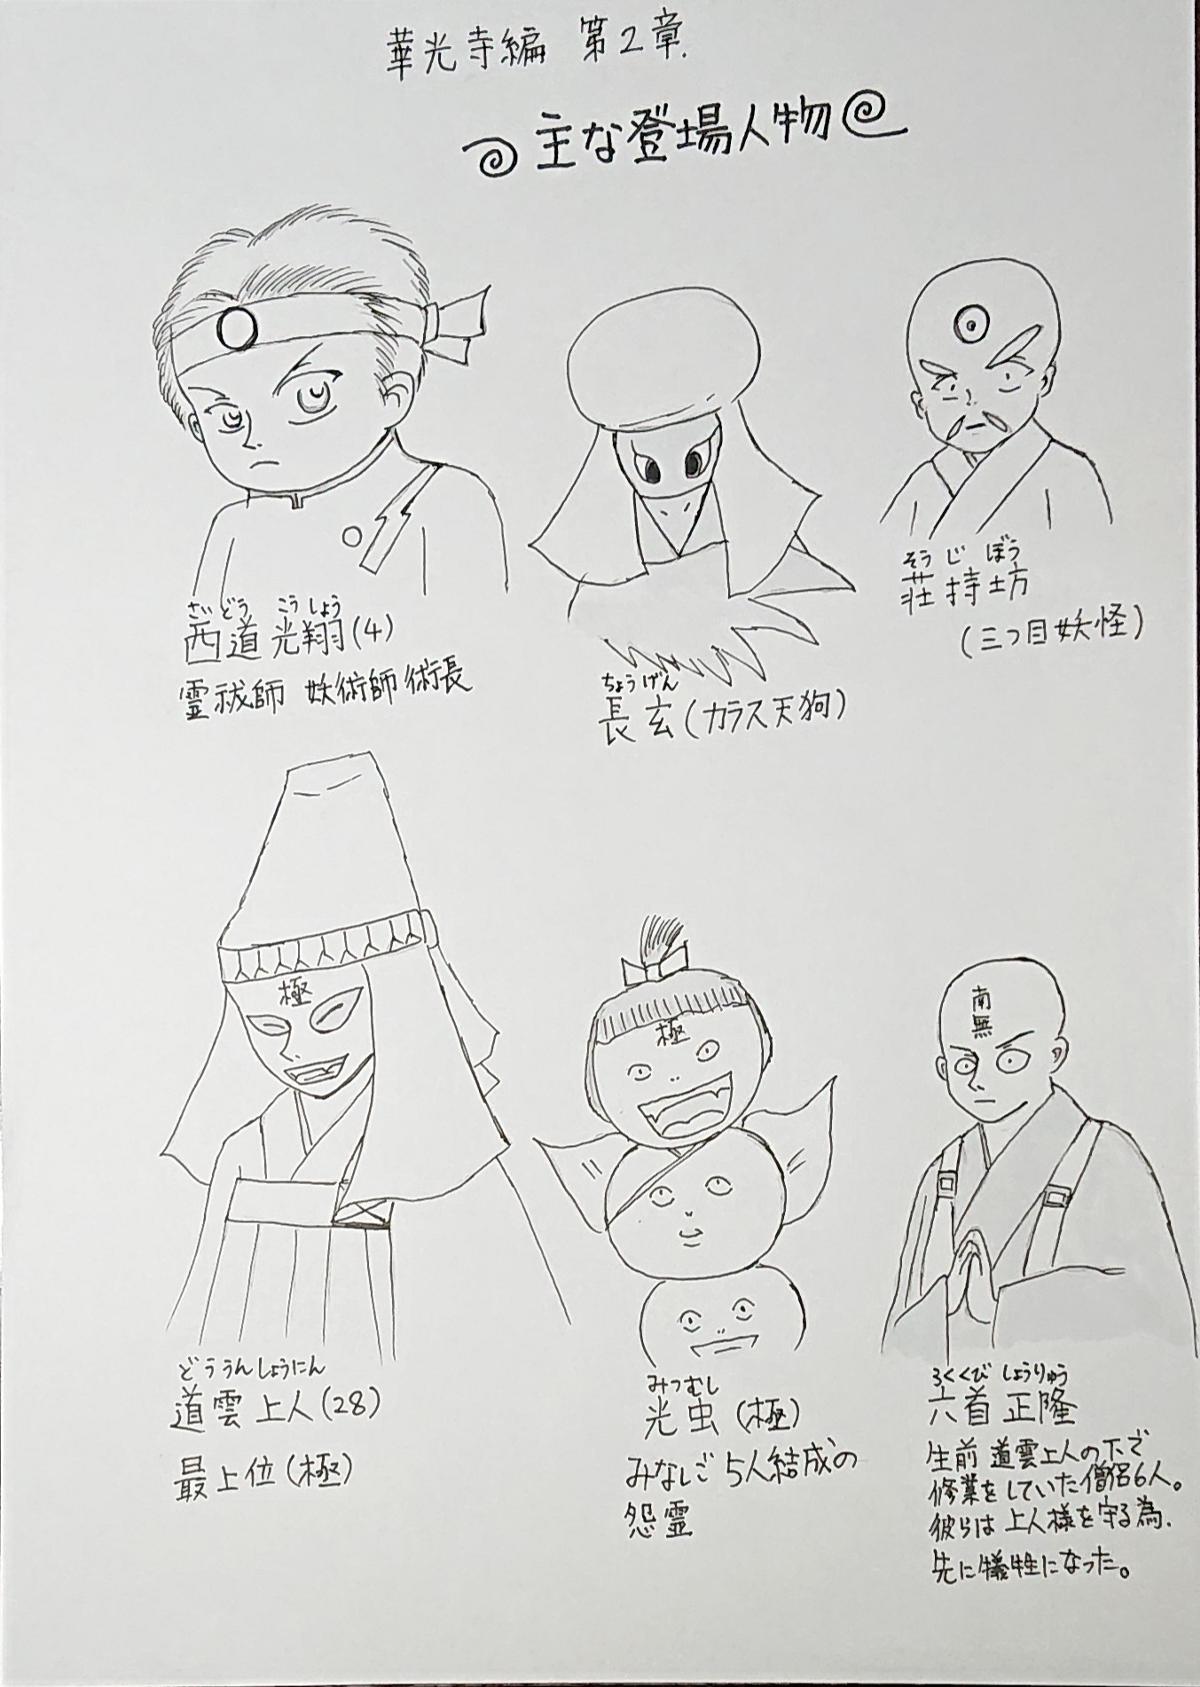 華光寺編 第2章.
主な登場人物
ざいどう こうしょう
西道光翔(4)
霊祓師 妖術師術長
ちょうげん
長玄(カラス天狗)
そうじぼう
荘持坊
(三つ目妖怪)
極
どううんしょうにん
道雲上人(28)
最上位(極)
極
みつむし
光虫(極)
みなしご5人結成の
怨霊
南無
ろくくび しょうりゅう
六首正隆
生前 道雲上人の下で
修業をしていた僧侶6人。
彼らは上人様を守る為.
先に犠牲になった。